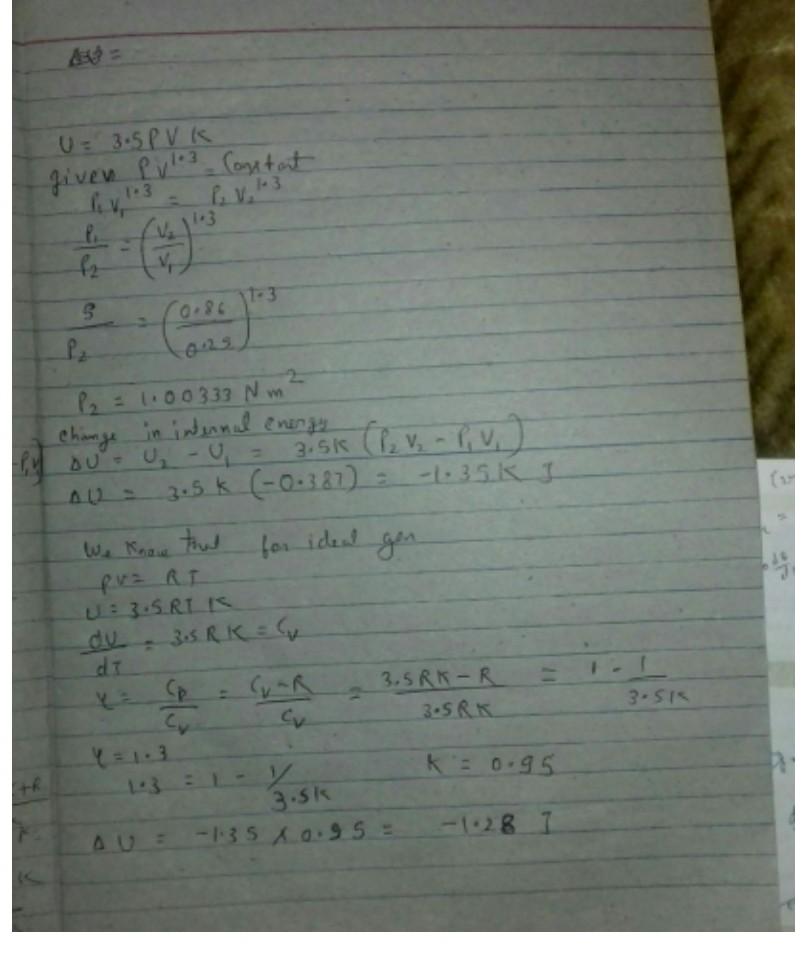 U = 3.5PVK
given PV^1.3 = Constant
P₁V₁^1.3 = P₂V₂^1.3
P₁/P₂ = (V₂/V₁)^1.3
5/P₂ = (0.86/0.25)^1.3
P₂ = 1.00333 N m²
change in internal energy
ΔU = U₂ - U₁ = 3.5K (P₂V₂ - P₁V₁)
ΔU = 3.5K (-0.387) = -1.35K J
We know that for ideal gas
PV = RT
U = 3.5RTK
dU/dT = 3.5RK = Cv
γ = Cp/Cv = Cv-R/Cv = 3.5RK-R/3.5RK = 1 - 1/3.5K
γ = 1.3
1.3 = 1 - 1/3.5K K = 0.95
ΔU = -1.35 x 0.95 = -1.28 J